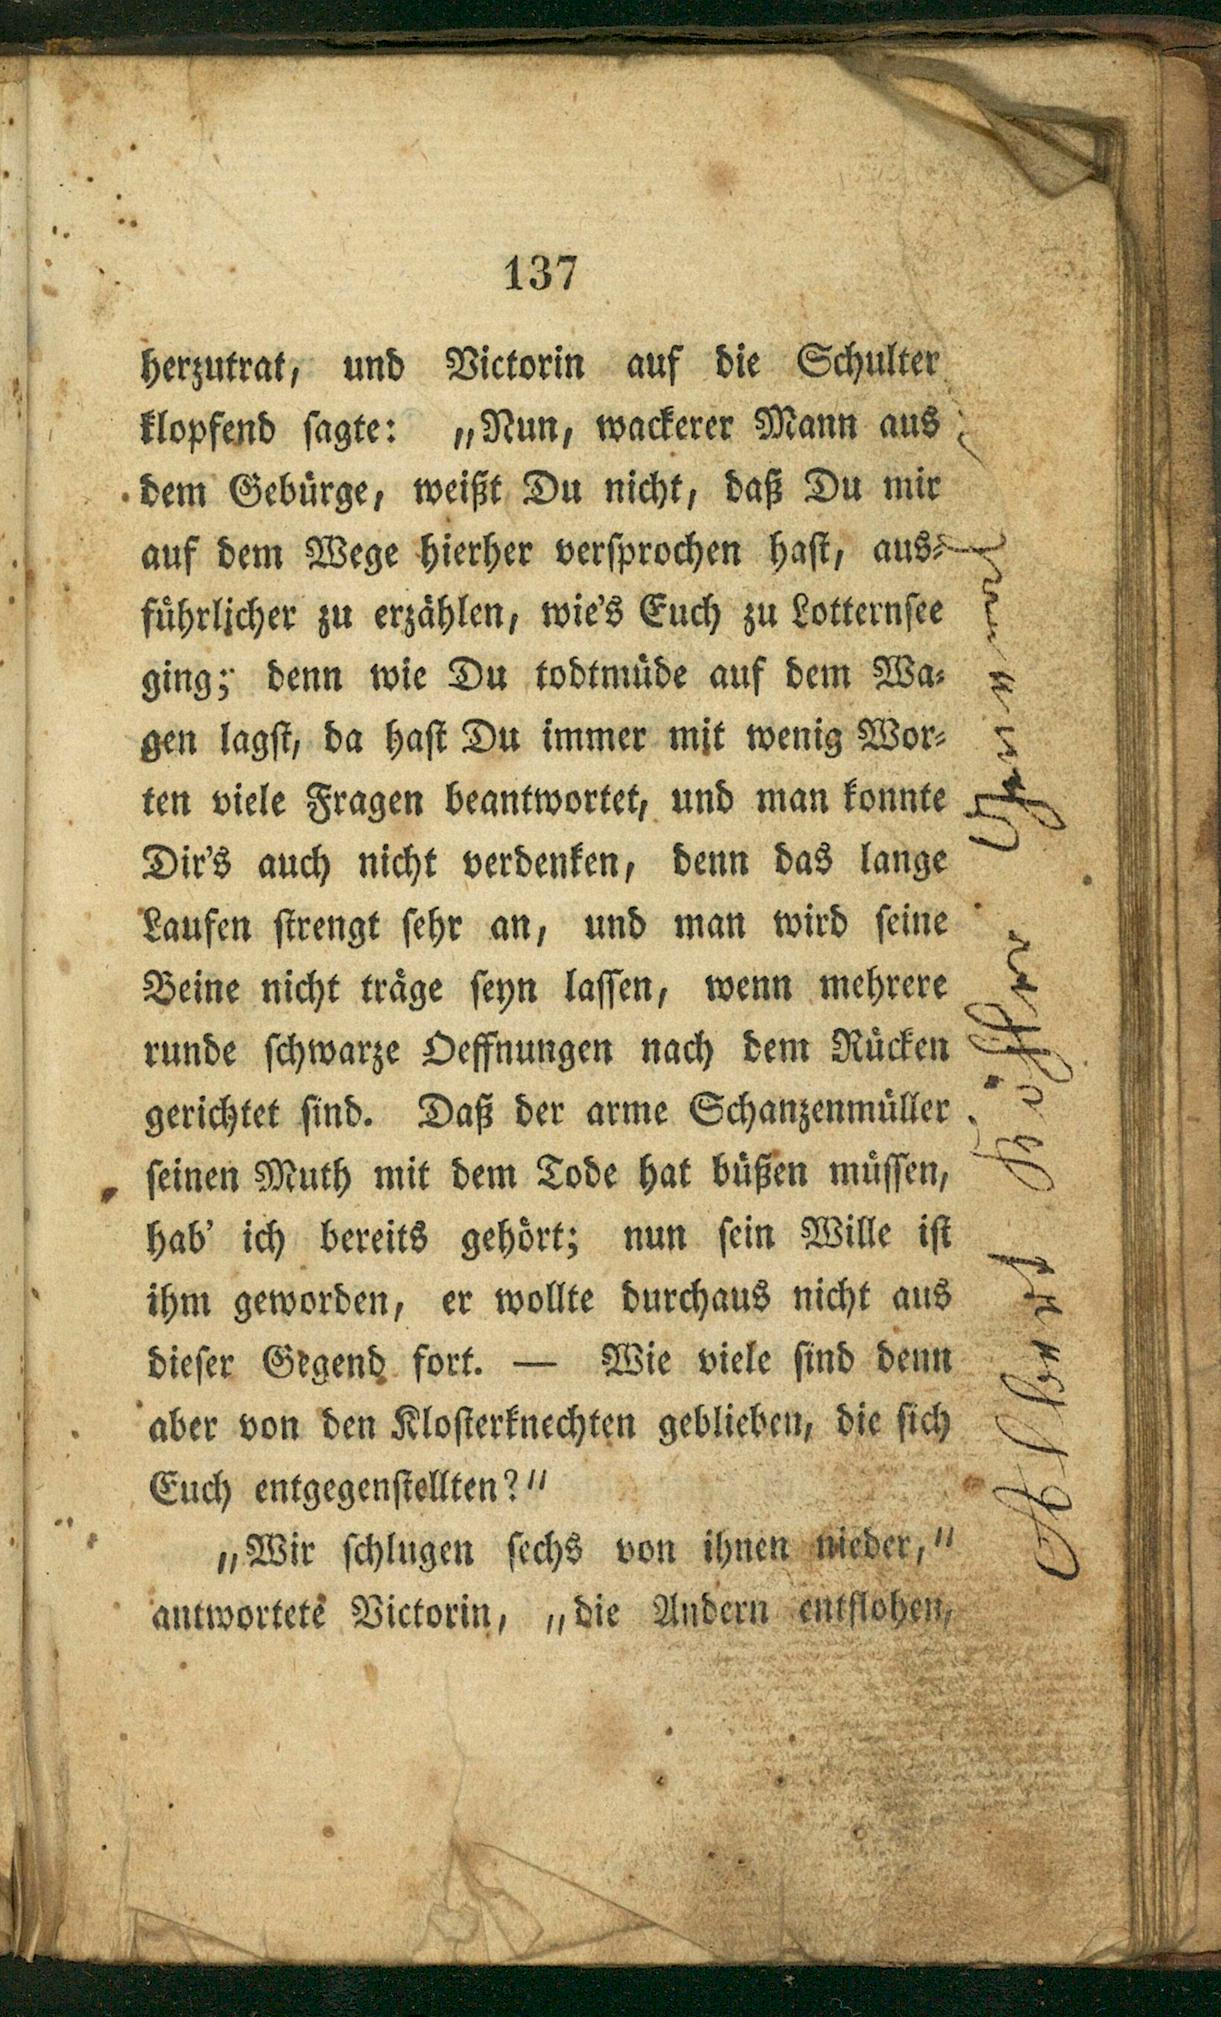 137
herzutrat, und Victorin auf die Schulter
klopfend sagte: „Nun, wackerer Mann aus
dem Gebürge, weißt Du nicht, daß Du mir
auf dem Wege hierher versprochen hast, aus-
führlicher zu erzählen, wie's Euch zu Lotternsee
ging; denn wie Du todtmüde auf dem Wa-
gen lagst, da hast Du immer mit wenig Wor-
ten viele Fragen beantwortet, und man konnte
Dir's auch nicht verdenken, denn das lange
Laufen strengt sehr an, und man wird seine
Beine nicht träge seyn lassen, wenn mehrere
runde schwarze Oeffnungen nach dem Rücken
gerichtet sind. Daß der arme Schanzenmüller
seinen Muth mit dem Tode hat büßen müssen,
hab' ich bereits gehört; nun sein Wille ist
ihm geworden, er wollte durchaus nicht aus
dieser Gegend fort. — Wie viele sind denn
aber von den Klosterknechten geblieben, die sich
Euch entgegenstellten?"
„Wir schlugen sechs von ihnen nieder,"
antwortete Victorin, „die Andern entflohen,
Albert